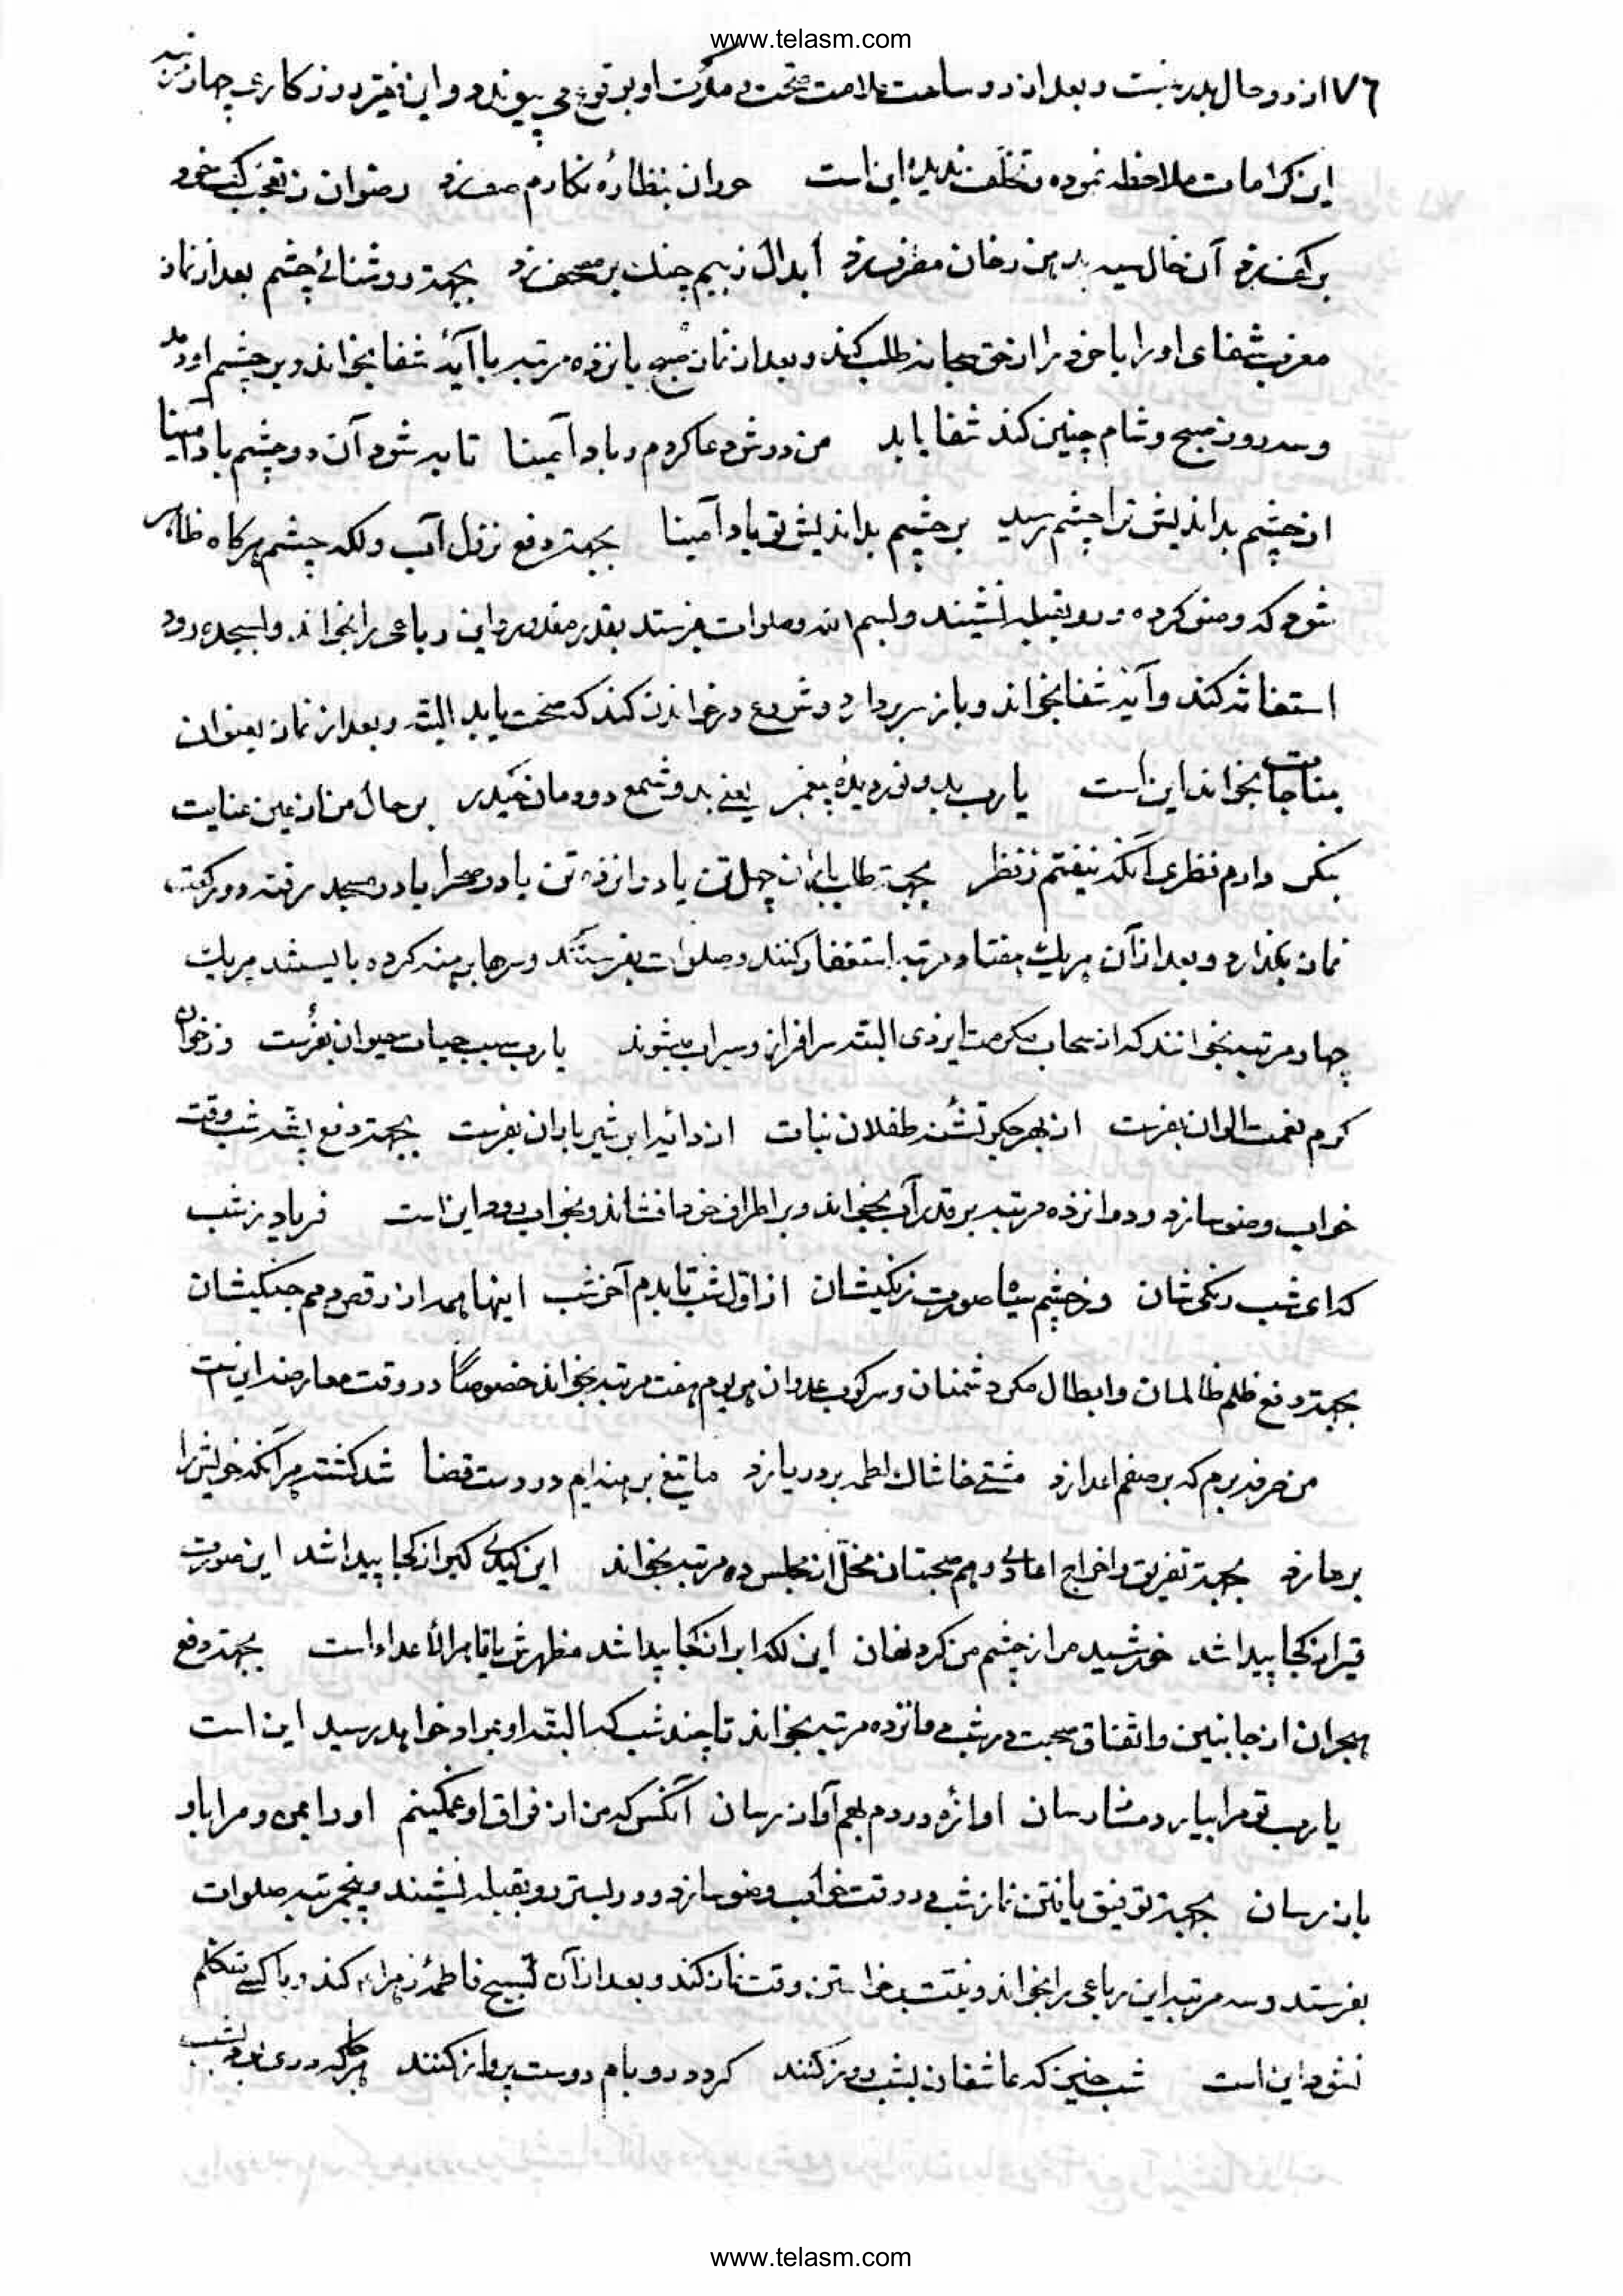 www.telasm.com
۱۷۶ از دو حال بدر نیست و بعد از دو ساعت علامت صحت یا مدکرت او بوقوع می پیوندد و این فقیر در کاری چهار
این کرامات ملاحظه نموده و تخلف ندیده این است حوران بنظاره نکارم صف زد رضوان ز تعجب کف خود
بر کف زد آن خال سیه بدین رخان مطرف زد ابدال ز بیم چنک بر مصحف زد بجهة روشنائی چشم بعد از نماز
مغرب شفای او را یا خود را از حق سبحانه طلب کند و بعد از نماز صبح پانزده مرتبه با آیه شفا بخواند و بر چشم او دمد
و سه روز صبح و شام چنین کند شفا یابد من دوش دعا کردم و باد آمینا تا به شود آن دو چشم بادامینا
از چشم بداندیش ترا چشم رسید بر چشم بداندیش تو باد آمینا بجهة دفع نزول آب و لکه چشم هرکاه ظاهر
شود که وضو کرده و رو بقبله نشیند و بسم الله و صلوات بفرستد بقدر مقدور و این رباعی را بخواند و بسجده رود
استغاثه کند و آیه شفا بخواند و باز سر بردارد و شروع در خواندن کند که صحت یابد البته و بعد از نماز بعنوان
مناجات بخواند این است یا رب بدو نور دیده پیغمبر یعنی بدو شمع دودمان حیدر بر حال من از عین عنایت
بنکر دارم نظری آنکه نیفتم ز نظر بجهة طلب باران چهل تن یا دوازده تن یا در صحرا یا در مسجد رفته دو رکعت
نماز بگذارد و بعد از آن هر یک هفتاد مرتبه استغفار کنند و صلوات بفرستند و سرها برهنه کرده بایستند هر یک
چهار مرتبه بخوانند که از سحاب مکرمت ایزدی البته سرافراز و سیراب میشوند یا رب سبب حیات حیوان بفرست وز خوان
کرم نعمت الوان بفرست از بهر جکر تشنه طفلان نبات از دایه ابر شیر باران بفرست بجهة دفع پشه شب وقت
خواب وضو سازد و دوانزده مرتبه بر قدر آب بخواند و بر اطراف خود افشاند و بخواب رود این است فریاد ز شب
کدای شب رنکی شان وز چشم سیاه صورت زنکیشان از اول شب تا بدم آخر شب اینها همه از رقص و هم جنکیشان
بجهة دفع ظلم ظالمان و ابطال مکر دشمنان و سرکوب عدوان هر یوم هفت مرتبه بخواند خصوصا در وقت معارضه این است
من صرفه برم که بر صفم اعدا زد مشتی خاشاک لطمه بر دریا زد ما تیغ برهنه ایم در دست قضا شد کشته هر آنکه خویش را
بر ما زد بجهة تفریق و اخراج اعادی و هم صحبتان مخل از مجلس ده مرتبه بخواند این کیدی کبر از کجا پیدا شد این صورت
قیر از کجا پیدا شد خورشید مرا ز چشم من کرد نهان این لکه ابر از کجا پیدا شد مظهرش یا قاهر الاعداء است بجهة دفع
هجران از جانبین و اتفاق صحبت هر شب پانزده مرتبه بخواند تا چند شب که البته او بمراد خواهد رسید این است
یا رب تو مرا بیار دمساز رسان آوازه دردم بهم آواز رسان آنکس که من از فراق او غمکینم او را بمن و مرا باو
باز رسان بجهة توفیق یافتن نماز شب در وقت خواب وضو سازد و در بستر رو بقبله نشیند و پنجمرتبه صلوات
بفرستد و سه مرتبه این رباعی را بخواند و نیت برخاستن وقت نماز کند و بعد از آن تسبیح فاطمه زهرا کند و با کسی متکلم
نشود این است شب خیز که عاشقان بشب راز کنند کرد در و بام دوست پرواز کنند هر جا که دری بود بشب
www.telasm.com